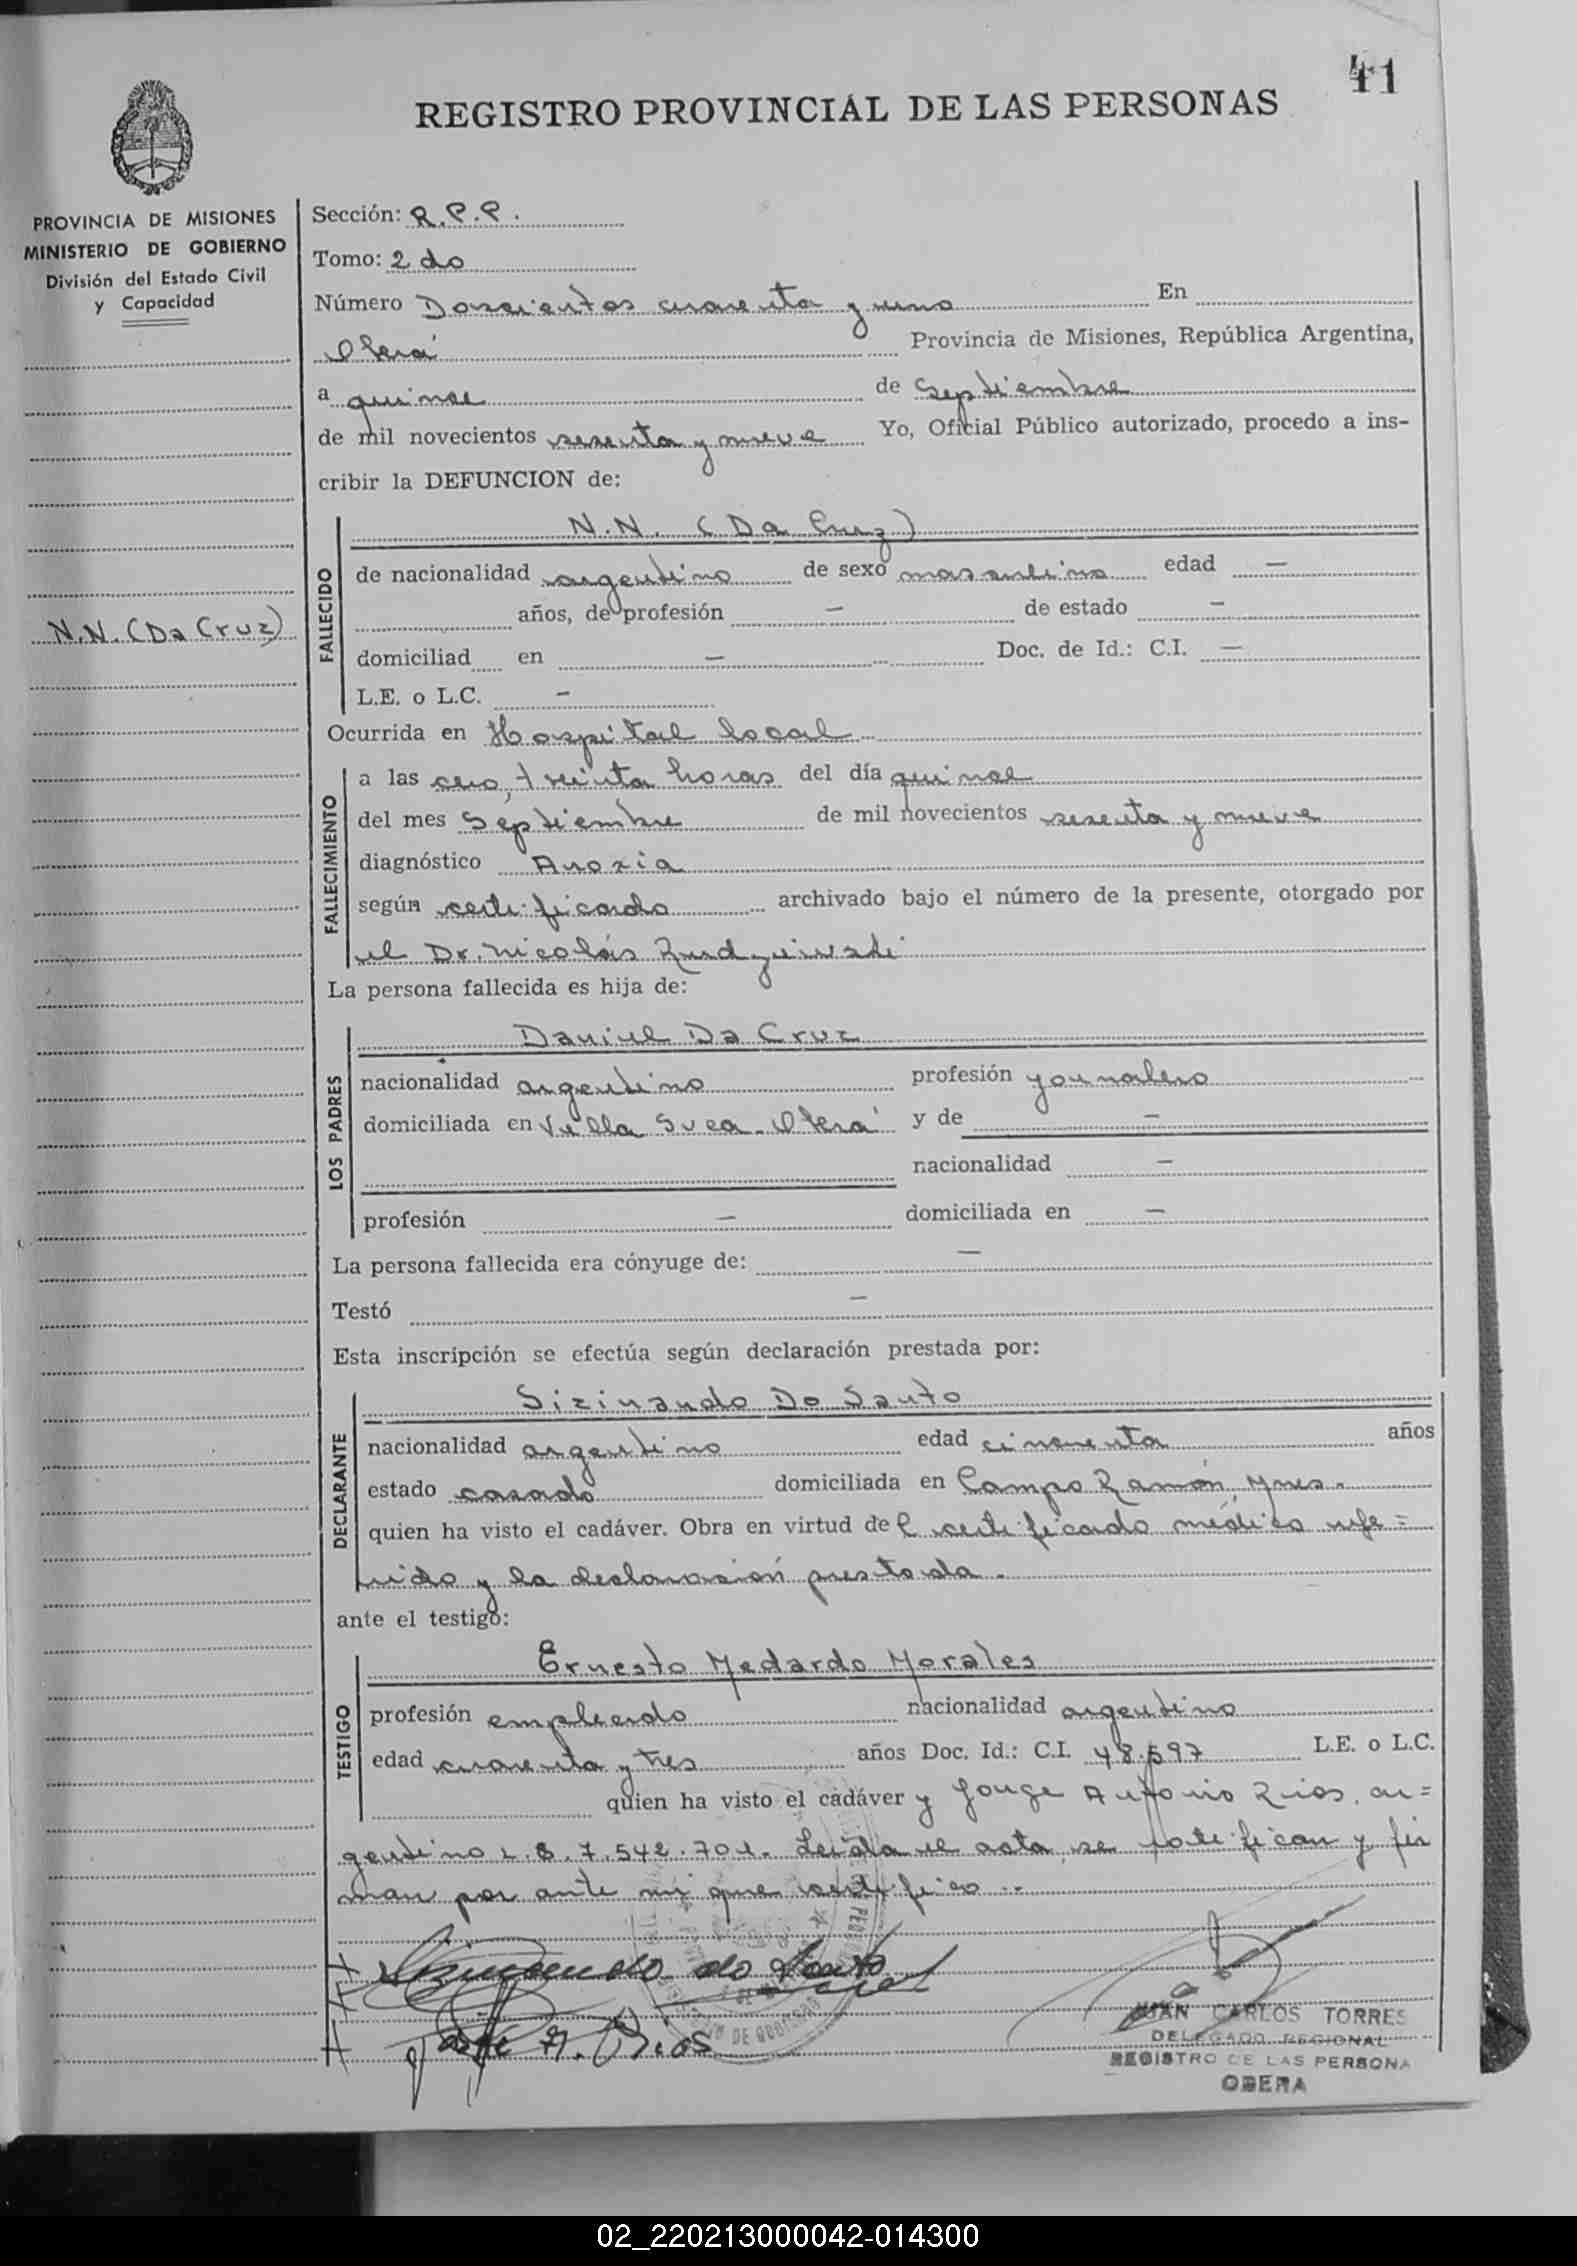 41
REGISTRO PROVINCIAL DE LAS PERSONAS
PROVINCIA DE MISIONES
MINISTERIO DE GOBIERNO
División del Estado Civil
y Capacidad
N.N. (Da Cruz)
Sección: R.P.P.
Tomo: 2 do
Número Doscientos cuarenta y uno En
Oberá Provincia de Misiones, República Argentina,
a quince de Septiembre
de mil novecientos sesenta y nueve Yo, Oficial Público autorizado, procedo a ins-
cribir la DEFUNCION de:
FALLECIDO
N.N. (Da Cruz)
de nacionalidad argentino de sexo masculino edad —
años, de profesión — de estado —
domiciliad en — Doc. de Id.: C.I. —
L.E. o L.C. —
Ocurrida en Hospital local
FALLECIMIENTO
a las cero, treinta horas del día quince
del mes Septiembre de mil novecientos sesenta y nueve
diagnóstico Anoxia
según certificado archivado bajo el número de la presente, otorgado por
el Dr. Nicolás
La persona fallecida es hija de:
LOS PADRES
Daniel Da Cruz
nacionalidad argentino profesión jornalero
domiciliada en Villa Svea - Oberá y de —
nacionalidad —
profesión — domiciliada en —
La persona fallecida era cónyuge de: —
Testó —
Esta inscripción se efectúa según declaración prestada por:
DECLARANTE
Sizinando Do Santo
nacionalidad argentino edad cincuenta años
estado casado domiciliada en Campo Ramón, Mnes.
quien ha visto el cadáver. Obra en virtud del certificado médico refe=
rido y la declaración prestada.
ante el testigo:
TESTIGO
Ernesto Medardo Morales
profesión empleado nacionalidad argentino
edad cuarenta y tres años Doc. Id.: C.I. 48.597 L.E. o L.C.
quien ha visto el cadáver y Jorge Antonio Rios, ar=
gentino L.E. 7.542.701. Leída el acta se ratifican y fir
man por ante mí que certifico.-
do Santo
Jorge A. Rios
JUAN CARLOS TORRES
DELEGADO REGIONAL
REGISTRO DE LAS PERSONA
OBERA
02_220213000042-014300